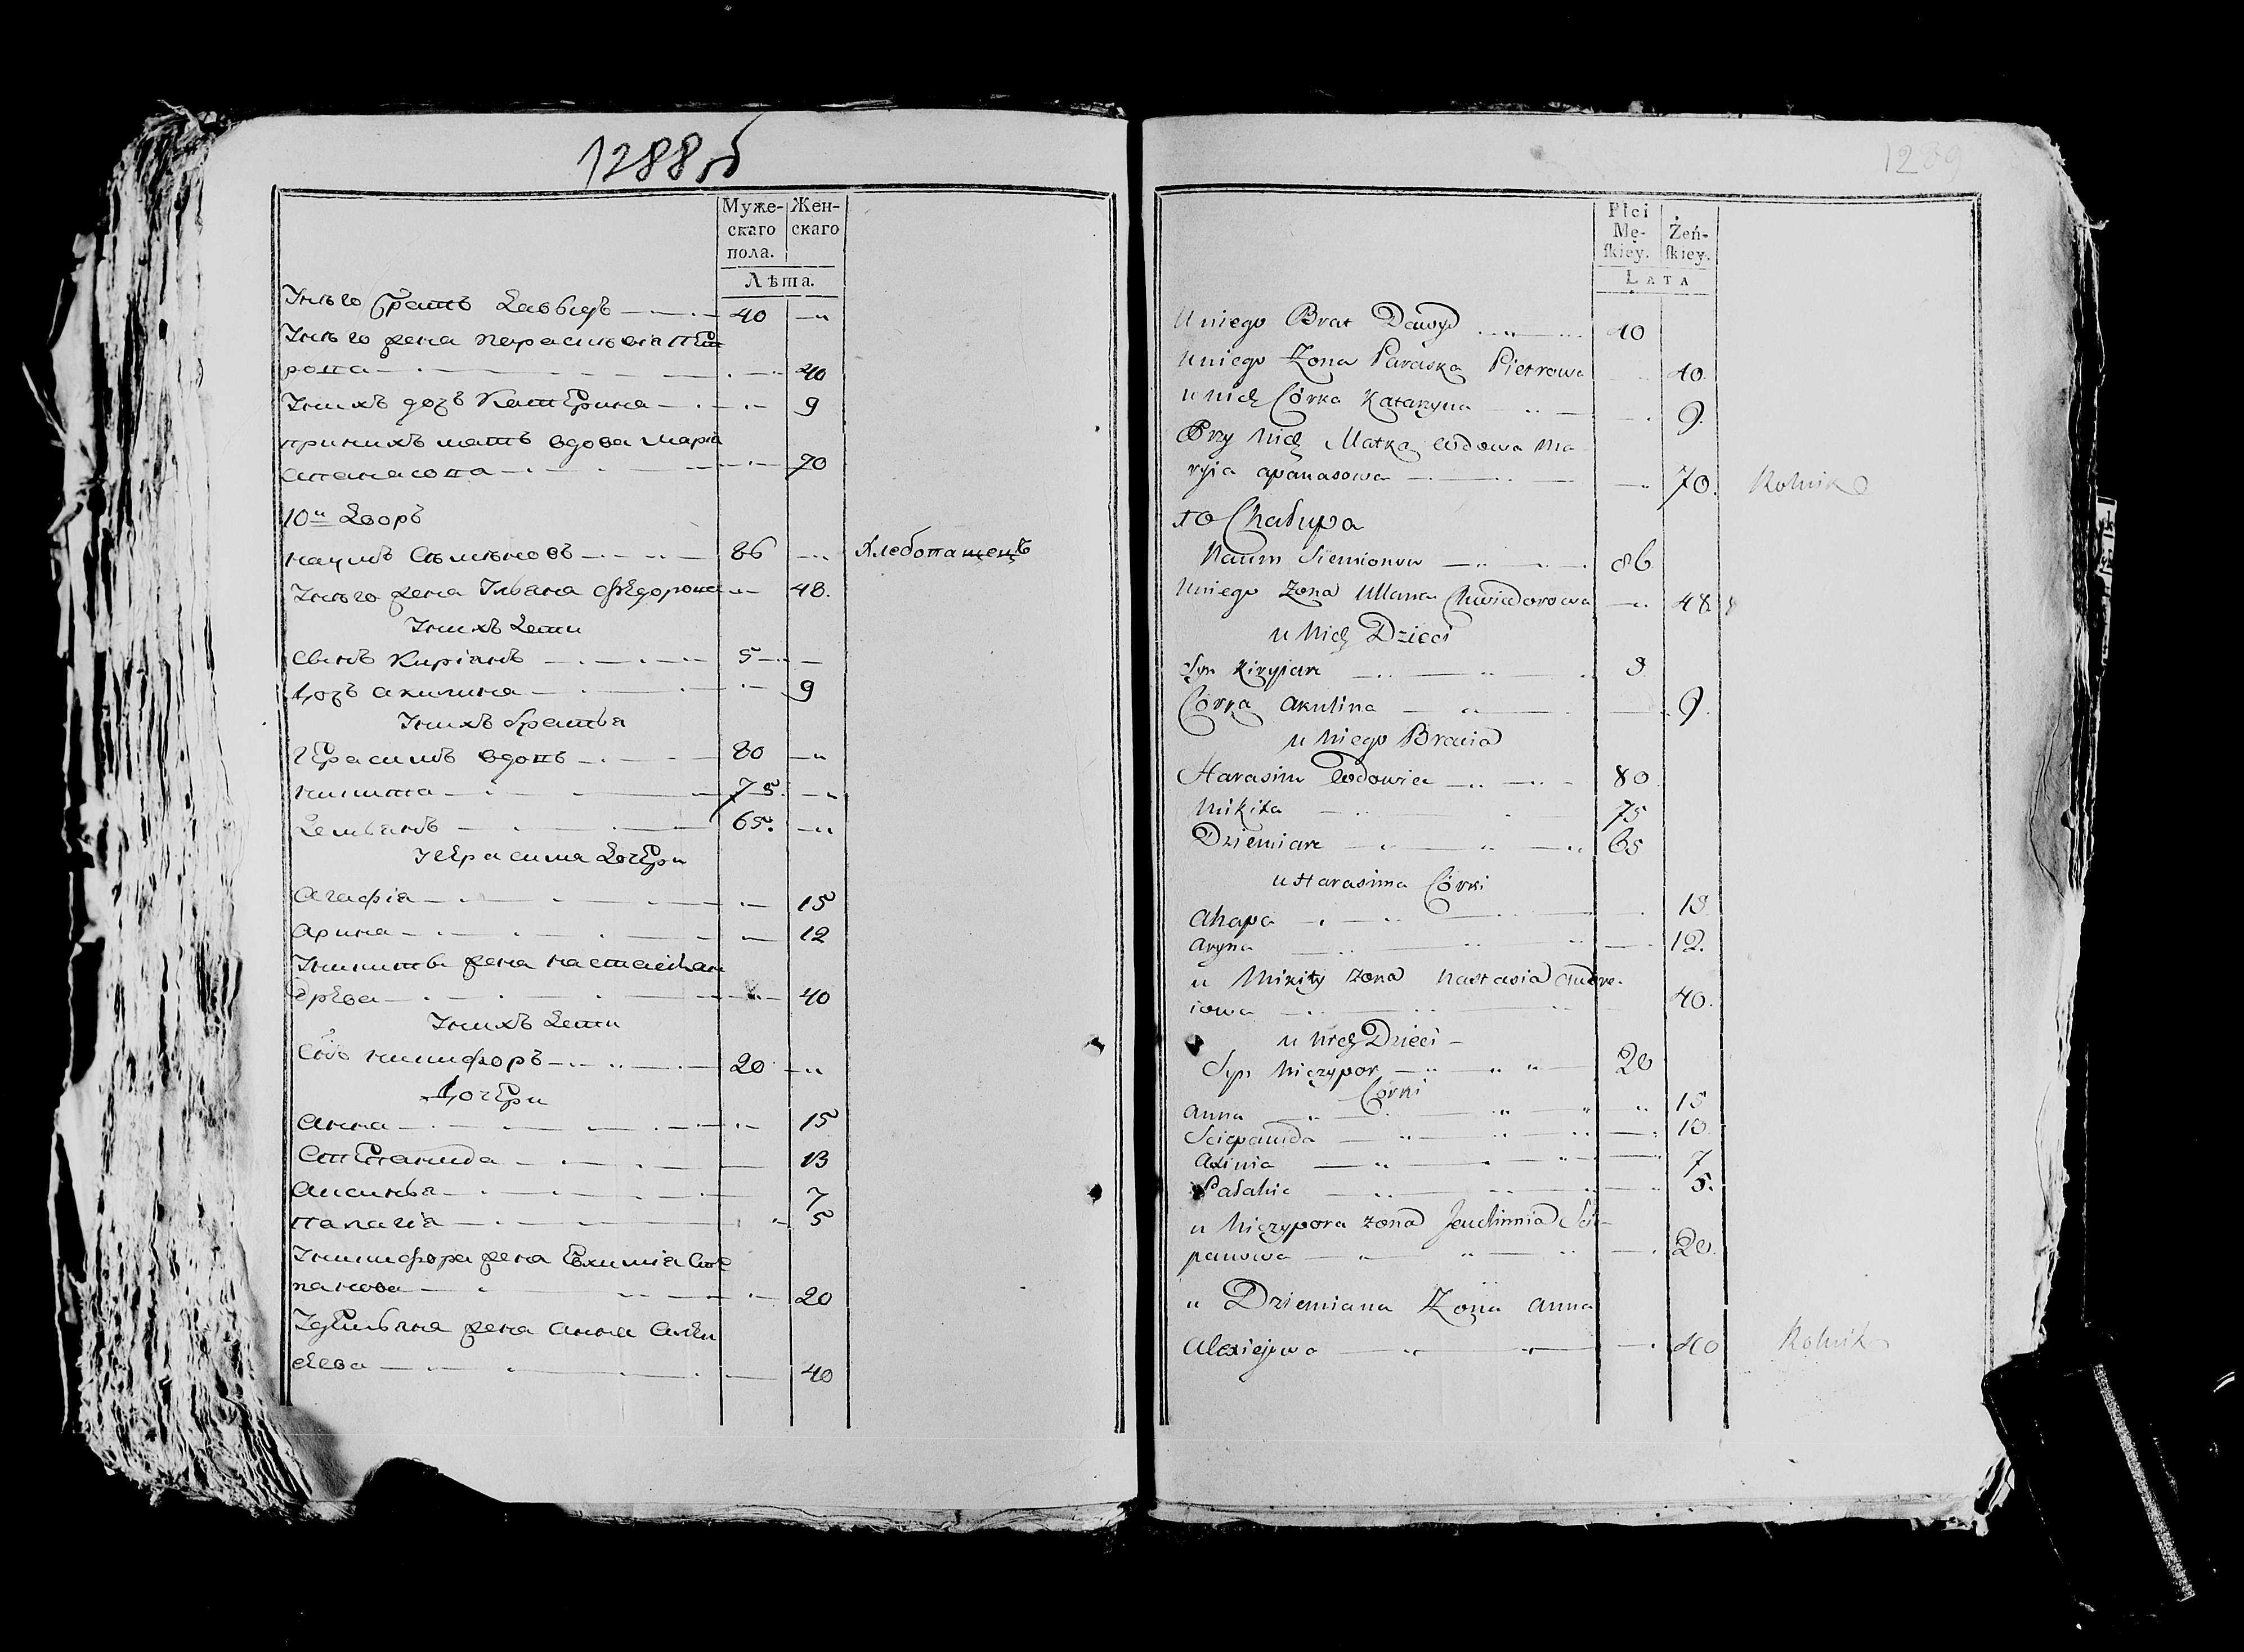 1288 об
Муже-
скаго
пола.
Жен-
скаго
Лѣта.
Унего братъ Давыдъ 40
Унего жена Парасковія Пет
рова 40
Унихъ дочъ Катерина 9
принихъ мать вдова Марія
Апанасова 70
10й Дворъ
Наумъ Сѣмѣновъ 86 Хлебопашецъ
Унего жена Ульана Федорова 48.
Унихъ дети
сынъ Киріанъ 5
дочъ Акилина 9
Унихъ братья
Герасимъ вдовъ 80
Никита 75.
Демьянъ 65.
У Герасима дочери
Агафія 15
Арина 12
У Никиты жена Настасія Ан
древа 40
Унихъ дети
Снъ Никифоръ 20
дочери
Анна 15
Степанида 13
Аксинья 7
Палагія 5
У Никифора жена Евхимія Сте
панова 20
У Демьяна жена Анна Алек
еева 40
1289
Płci
Mę-
ſkiey.
Żeń-
ſkiey.
LATA
U niego Brat Dawyd 40
U niego Żona Paraska Pietrowa 40.
u nich Córka Katarzyna 9.
Przy nich Matka wdowa Ma
ryia apanasowa 70. Rolnik
10 Chałupa
Naum Siemionow 86
U niego Żona Ullana Chwiedorowa 48
u nich Dzieci
Syn Kiryian 5
Córka Akulina 9.
u niego Bracia
Harasim wdowiec 80
Mikita 75
Dziemian 65
u Harasima Córki
Ahapa 15
Aryna 12.
u Mikity żona Nastasia Andre-
iowa 40.
u nich Dzieci
Syn Niczypor 20
Córki
Anna 15
Sciepanida 13
Axinia 7
Pałahia 5.
u Niczypora żona Jeuchimia Ście
panowa 20.
u Dziemiana Żona Anna
Alexiejewa 40 Rolnik